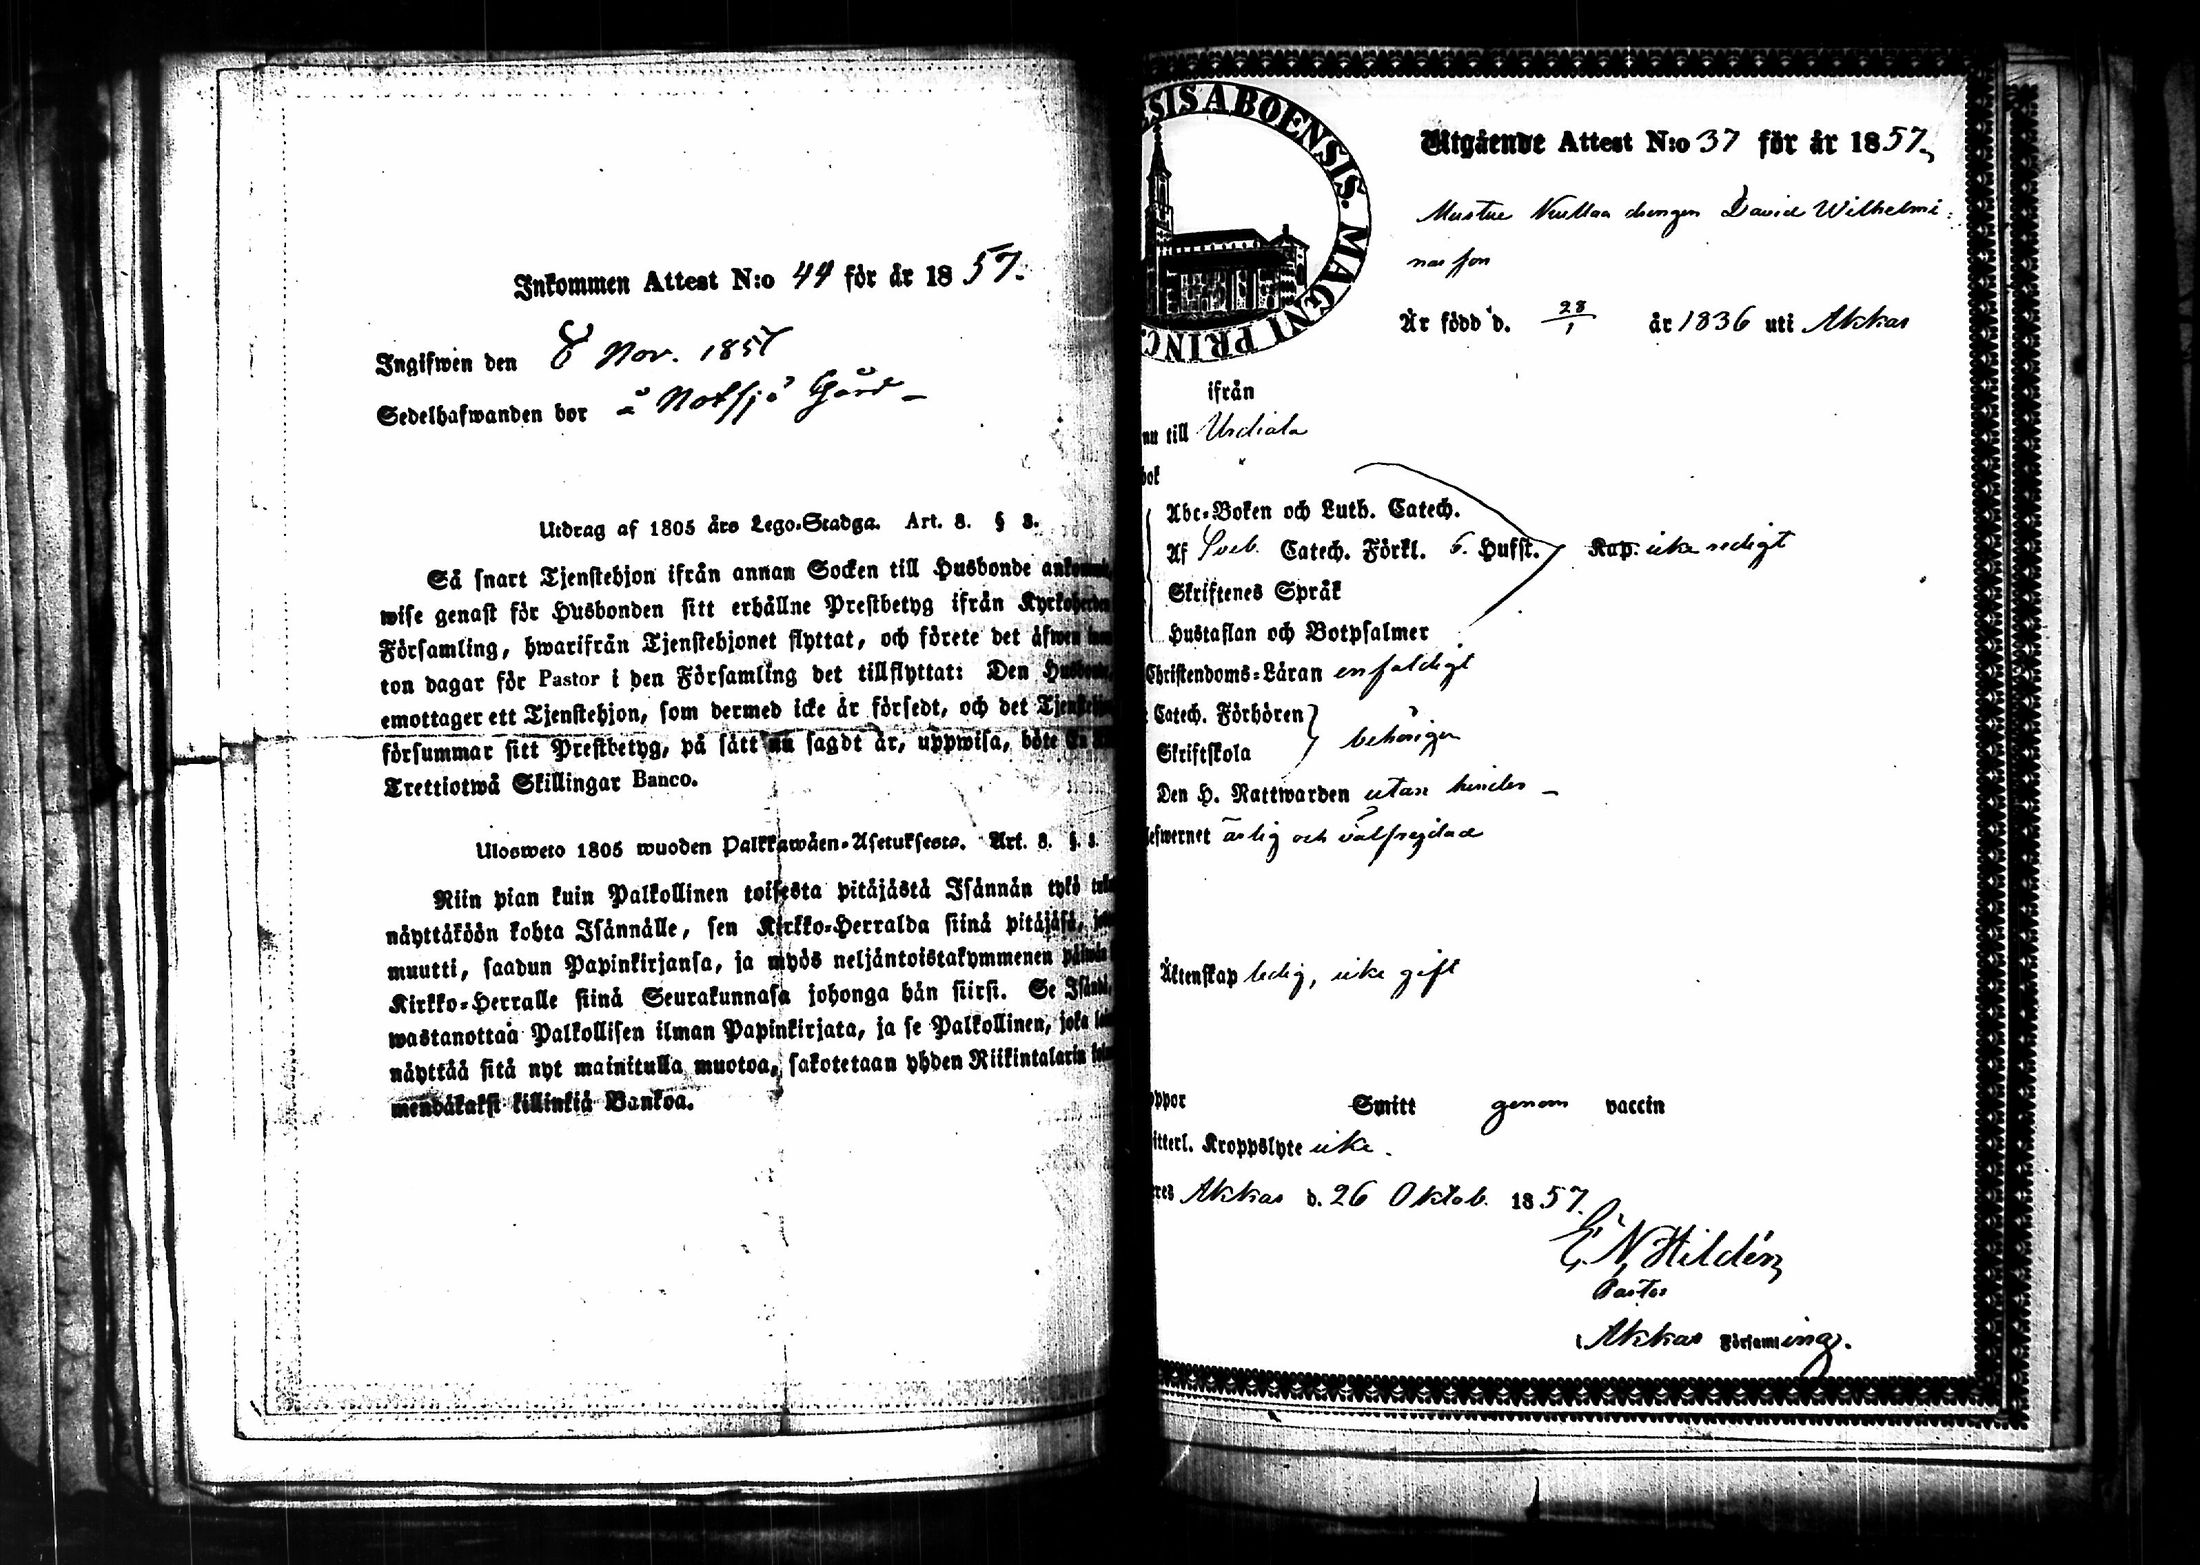 Inkommen Attest N:o 44 för år 1857.
Ingifwen den 8 Nov. 1857
Sedelhafwanden bor å Notsjö Gård –
Utdrag af 1805 års Lego-Stadga. Art. 8. § 3.
Så snart Tjenstehjon ifrån annan Socken till Husbonde
wise genast för Husbonden sitt erhållne Prestbetyg ifrån
Församling, hwarifrån Tjenstehjonet flyttat, och förete det äfwen
ton dagar för Pastor i den Församling det tillflyttat: Den
emottager ett Tjenstehjon, som dermed icke är försedt, och det
försummar sitt Prestbetyg, på sätt nu sagdt är, uppwisa, böte
Trettiotwå Skillingar Banco.
Ulosweto 1805 wuoden Palkkawäen-Asetuksesta. Art. 8. §.
Niin pian kuin Palkollinen toisesta pitäjästä Isännän tykö
näyttäköön kohta Isännälle, sen Kirkko-Herralda siinä pitäjäsä,
muutti, saadun Papinkirjansa, ja myös neljäntoistakymmenen
Kirkko-Herralle siinä Seurakunnasa johonga hän siirsi. Se
wastanottaa Palkollisen ilman Papinkirjata, ja se Palkollinen, joka
näyttää sitä nyt mainitulla muotoa, sakotetaan yhden Riikintalarin
mendäkaksi killinkiä Bankoa.
ESIS ABOENSIS. MAGNI PRINC.
Utgående Attest N:o 37 för år 1857.
drengen David Wilhelmi-
nas son
Är född d. 28/1 år 1836 uti Akkas
ifrån
nu till Urdiala
bok
Abc-Boken och Luth. Catech.
Af Sveb. Catech. Förkl. 6. Hufst. Kap. icke redigt
Skriftenes Språk
Hustaflan och Botpsalmer
Christendoms-Läran enfaldigt
Catech. Förhören
Skriftskola behörigen
Den H. Nattwarden utan hinder –
leswernet ärlig och välfrejdad
Äktenskap ledig, icke gift
oppor Smitt genom vaccin
itterl. Kroppslyte icke.
res Akkas d. 26 Oktob. 1857.
E. N. Hildén
Pastor
i Akkas Församling.